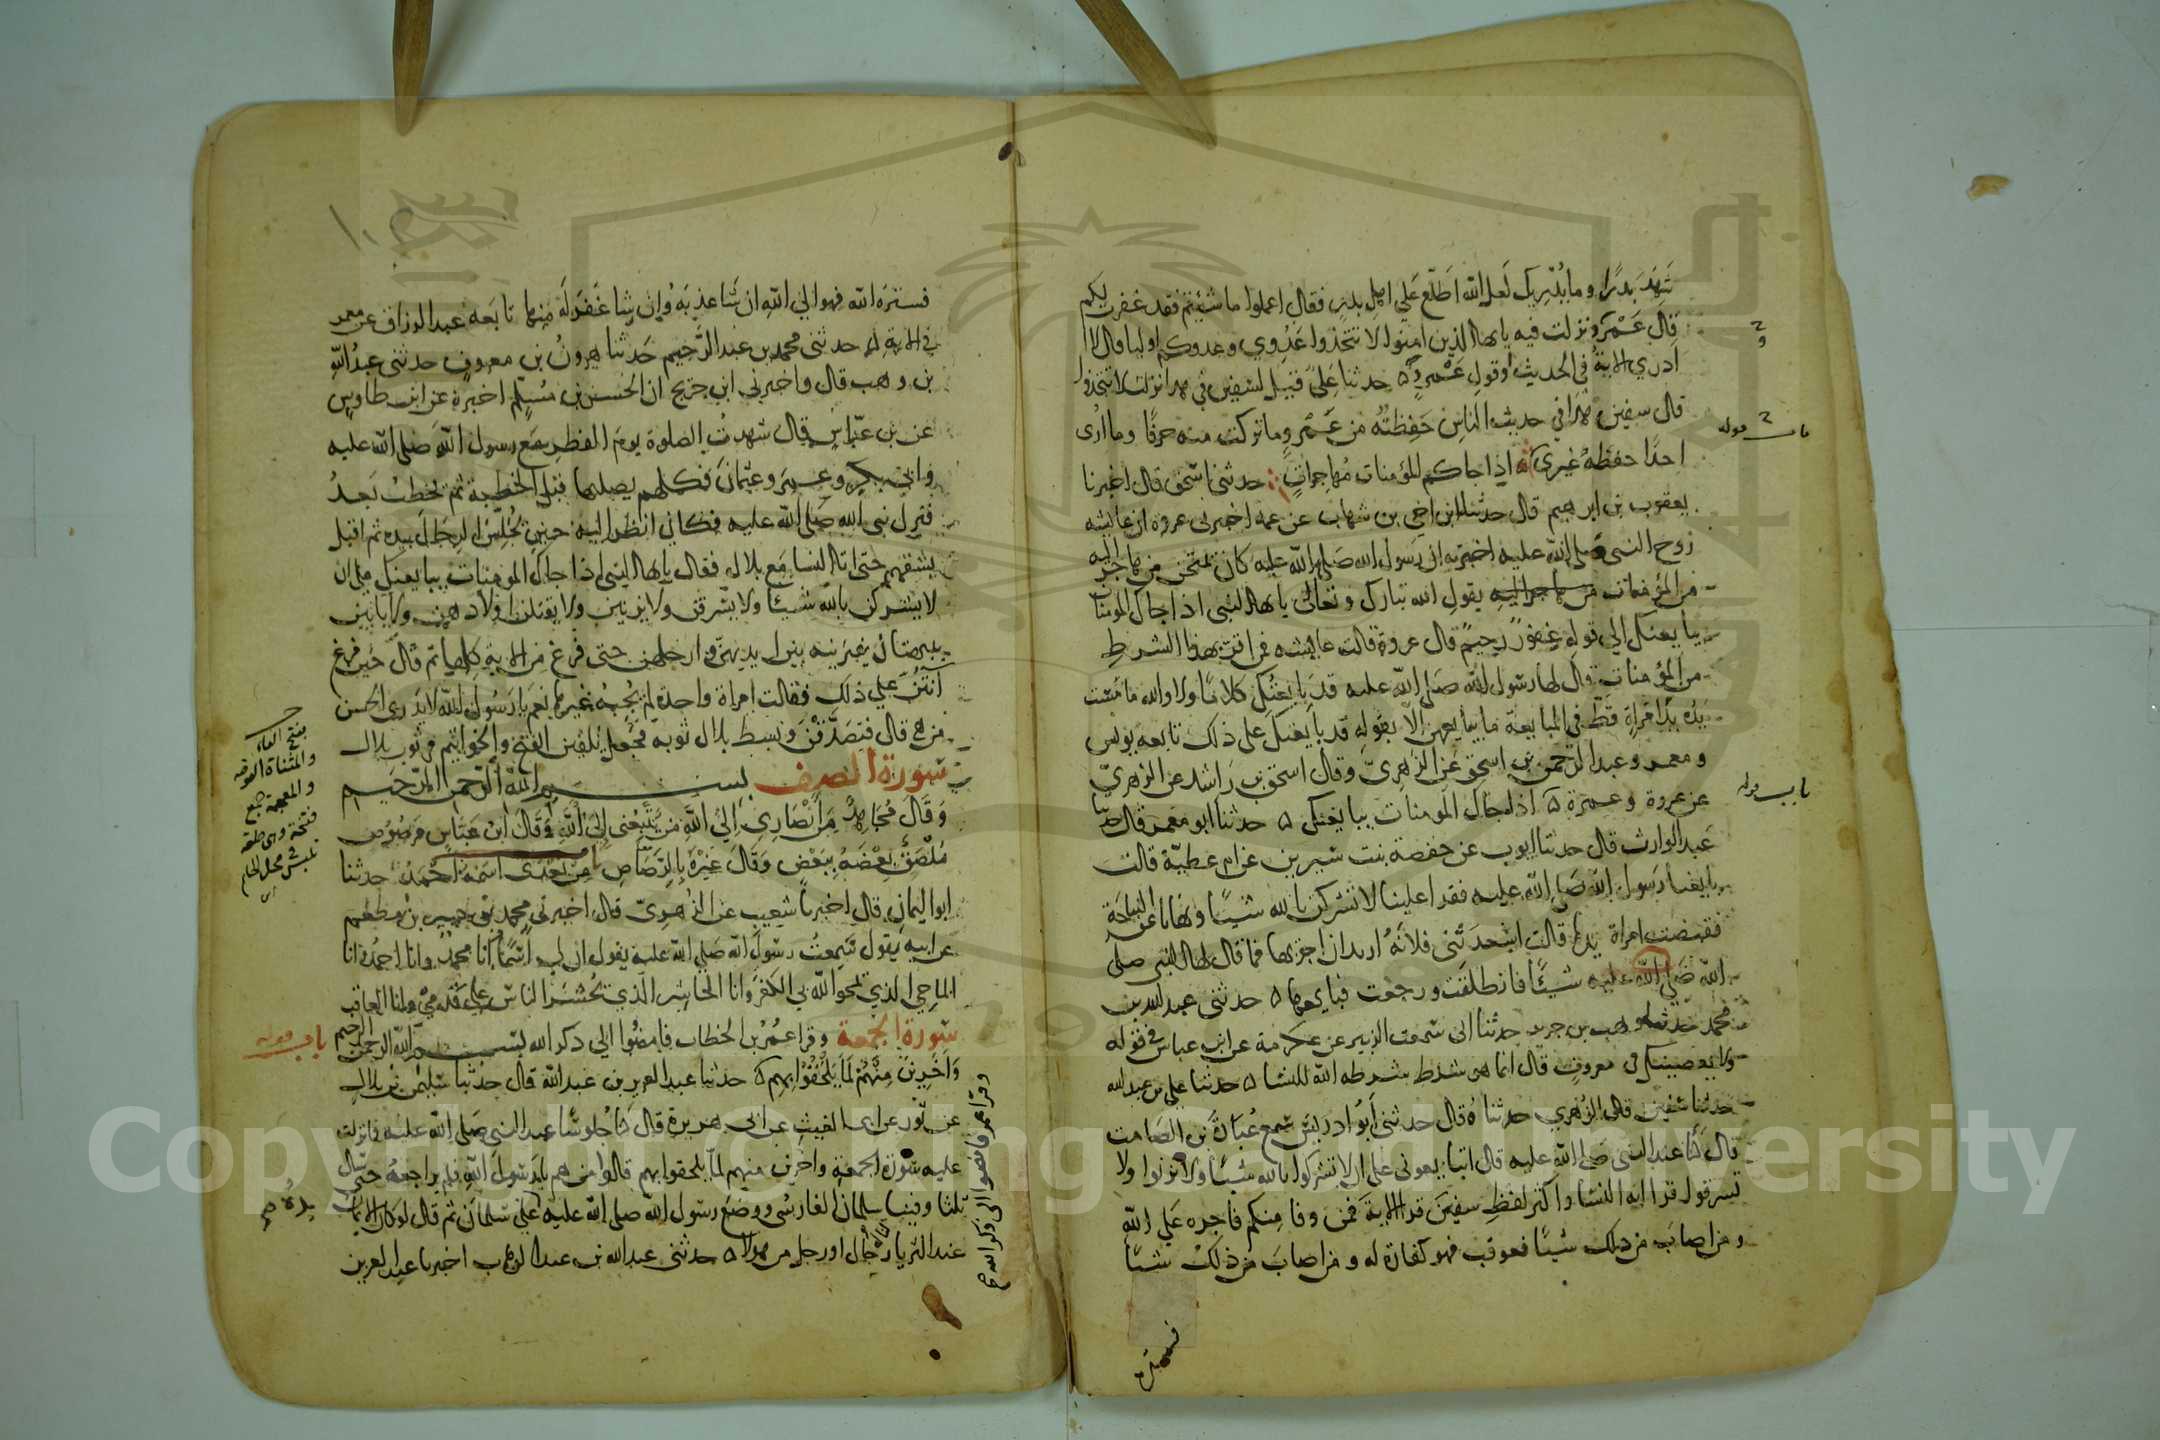 شَهِدَ بَدرًا وما يُدْرِيك لَعل الله اطّلع عَلي اهل بدرٍ فقال اعملوا ما شئتم فقد غفرت لكم
قال عَمْرو ونزلت فيه يا يها الذين امنوا لا تتخذوا عَدُوي وعدوكم اوليا قال لا
ادري الاية في الحديث او قول عَمْرو حدثنا عَليّ قيل لسفين في هذا نزلت لا تتخذوا
قال سفين هذا في حديث الناس حَفِظتُه من عَمْرٍو ما تركت منه حرفًا وما اُرى
احدًا حفظهُ غيري اذا جاكم المؤمنات مُهاجراتٍ حدثنا اسحق قال اخبرنا
يعقوب بن ابرهيم قال حدثنا ابن اخي بن شهاب عن عمه اخبرني عروة ان عايشه
زوج النبي صلى الله عليه اخبرته ان رسول الله صَلى الله عليه كان يمتحن من هاجر اليه
من المؤمنات من هاجر اليه يقول الله تبارك وتعالى يا يها النبي اذا جاك المومنات
يبايعنك الي قوله غفورٌ رحيمٌ قال عروة قالت عايشه فمن اقرّ بهذا الشرطِ
من المؤمنات قال لها رسول الله صَلى الله عليه قد بايعتُكِ كلامًا ولا والله ما مَسّت
يدُه يدَ امراةٍ قط في المبايعة ما يبايعهن الّا بقوله قد بايعتك على ذلك تابعه يونس
ومعمر وعبد الرحمن بن اسحق عن الزهريّ وقال اسحق بن رَاشد عن الزهريّ
عن عروة وعمرة اذا جاك المومنات يبايعنك حدثنا ابو معمر قال حدثنا
عَبد الوارث قال حدثنا ايوب عن حفصة بنت سيرين عن ام عطيّة قالت
بايعنا رَسول الله صَلى الله عليه فقرا علينا لا تشركن بالله شيئًا ونهانا عن النياحة
فقبضت امراة يدها قالت اسعدَتْني فلانةُ اريد ان اجزيها فما قال لها النبي صلى
الله صَلى الله عليه شيئًا فانطلقت ورجعت فبايعها حدثني عبد الله بن
محمد حدثنا وهب بن جرير حدثنا ابي سمعت الزبير عن عكرمة عن ابن عباس في قوله
ولا يعصينك في معروفٍ قال انما هو شرط شرطه الله للنسا حدثنا علي بن عبد الله
حدثنا سفين قال الزهري حدثناهُ قال حدثني أبُو ادريس سمع عُبَادة بن الصَامت
قال كُنّا عند النبي صَلى الله عليه قال اتبايعوني على ان لا تشركوا بالله شيئًا ولا تزنوا ولا
تسرقوا وقرا اية النسا واكثر لفظِ سفينَ قرا الايةَ فمن وفا منكم فاجره عَلي الله
ومن اصابَ من ذلك شيئًا فعوقب فهو كفارة له ومن اصابَ من ذلك شيئًا
فستره
باب قوله
باب قوله
فسترَه الله فهو الي الله ان شَا عذبه وُان شا غَفَر لَه مِنها تابعَه عبد الرزاق عن معمر
في الاية حدثني محمد بن عبد الرَّحيم حدثنا هرونُ بن معروفٍ حدثني عبدُ الله
بن وهب قال واخبرني ابن جريج ان الحسن بن مُسلم اخبره عن ابن طاوسٍ
عن بن عبّاسٍ قال شهدتُ الصلوة يومَ الفطر مع رسول الله صَلى الله عليه
وابي بكرٍ وعمر وعثمان فكلهم يصليها قبل الخطبة ثم يخطب بَعدُ
فنزل نبي الله صَلى الله عليه فكاني انظر اليه حين يُجَلّسُ الرجَال بيده ثم اقبل
يشقهم حتى اتا النسا مَع بلال فقال يا يها النبي اذا جاك المومنات يبايعنك على ان
لا يشركن بالله شيئًا ولا يسرقن ولا يزنين ولا يقتلن اولادهن ولا ياتين
ببهتان يفترينه بين ايديهنّ وارجلهن حتى فرغ من الاية كلها ثم قال حين فرغ
اَنتُنّ على ذلك فقالت امراة واحدة لم يُجِبه غيرها نعم يا رَسُول الله لا يَدري الحسن
من هي قال فتصدَّقْنَ وبسط بلال ثوبه فجعلن يُلقين الفتخ والخواتيم في ثوب بلال
سورة الصف بسم الله الرحمن الرحيم
وَقَالَ مُجَاهِدٌ مَنْ أَنْصَارِي إِلَى اللهِ مَن يَتَّبِعُني إِلَى اللهِ وَقَالَ ابْن عَبَّاسٍ مَرصُوصٌ
مُلْصَقٌ بَعْضُهُ بِبَعْضٍ وَقَالَ غَيْرُهُ بِالرَّصَاصِ مِنْ بَعْدِى اسْمُهُ احْمَدُ حدثنا
ابو اليمان قال اخبرنا شعيب عن الزهريّ قال اخبرني محمد بن جبير بن مطعم
عن ابيه يقول سمِعتُ رسول الله صَلى الله عليه يقول ان لي اسْمًا أنا محمدٌ وانا احمدُ وانا
الماحي الذي يمحو الله بي الكفرَ وانا الحاشر الذي يُحشر الناس على قَدمي وانا العاقب
سورة الجمعة وقرا عمُرُ بن الخطاب فامضُوا الي ذكر الله بسم الله الرحمن الرحيم
وَآخَرِينَ مِنْهُمْ لَمَّا يَلْحَقُوا بِهِم حدثنا عبد العزيز بن عبد الله قال حدثنا سليمن بن بلال
عن ثور عن ابي الغيث عن ابي هريرة قال كنا جُلوسًا عند النبي صَلى الله عليه فانزلت
عليه سورة الجمعة واخرين منهم لمّا يلحقوا بهم قالوا من هم يا رسول الله فلم يراجعهُ حتى سال
ثلثا وفينا سلمان الفارسُي ووضعَ رسول الله صلى الله عليه يده على سلمان ثم قال لو كان الايمان
عند الثريا لناله رجال او رجل من هولا حدثني عبد الله بن عبد الوهاب اخبرنا عبد العزيز
بفتح الفاء
والمثناة الفوقيه
والمعجمة جمع
فتخة وهي حلقة
باب قوله
يدهُ صح
وقرا عمر فامضوا الى ذكر الله
Copyright © King Saud University